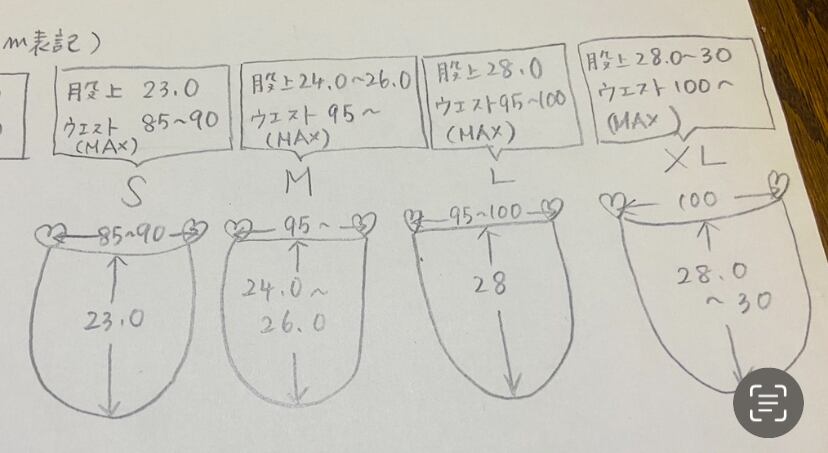 m表記)
股上 23.0
ウエスト 85~90
(MAX)
股上24.0~26.0
ウエスト 95~
(MAX)
股上28.0
ウエスト95~100
(MAX)
股上28.0~30
ウエスト 100~
(MAX)
S
M
L
XL
85~90
95~
95~100
100
23.0
24.0~
26.0
28
28.0
~30